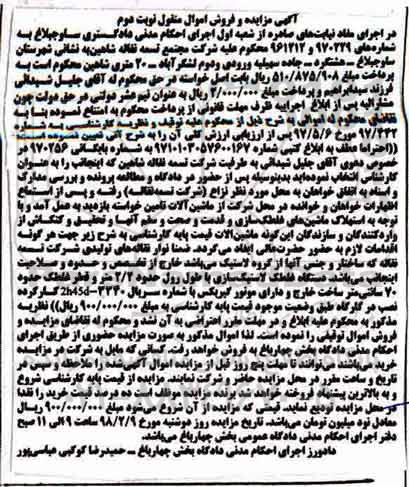 آگهی مزایده و فروش اموال منقول نوبت دوم
در اجرای مفاد نیابت‌های صادره از شعبه اول اجرای احکام مدنی دادگستری ساوجبلاغ به
شماره‌های ۹۷۰۲۲۹ و ۹۶۱۲۱۲ محکوم علیه شرکت مجتمع تسمه نقاله شاهین به نشانی شهرستان
ساوجبلاغ – جاده سهیلیه ورودی ودوم لشکرآباد – ۲۰ متری شاهین محکوم است به
پرداخت مبلغ ۵۱۰/۸۷۵/۹۰۸ ریال بابت اصل خواسته در حق محکوم له آقای جلیل شیدائی
فرزند سیدابراهیم و پرداخت مبلغ ۲/۰۰۰/۰۰۰ ریال به عنوان نیم عشر دولتی در حق دولت چون
مشارالیه پس از ابلاغ اجراییه ظرف مهلت قانونی از پرداخت محکوم به امتناع نموده بنا به
تقاضای محکوم له اموال به شرح ذیل از محکوم علیه توقیف و نظریه کارشناسی به شماره
۹۷/۴۴۲ مورخ ۹۷/۵/۶ پس از ارزیابی ارزش آن را به شرح آتی تعیین نموده است
((احتراما عطف به ابلاغ کتبی شماره ۹۷۱۰۱۰۳۵۷۶۰۰۱۶۷ به شماره بایگانی ۹۷۰۲۵۶ در
خصوص دعوی آقای جلیل شیدائی به طرفیت شرکت تسمه نقاله شاهین که اینجانب را به عنوان
کارشناس انتخاب نموده‌اید بدینوسیله پس از حضور در دادگاه و مطالعه پرونده و بررسی مدارک
و اسناد به اتفاق خواهان به محل مورد نظر نزاع (شرکت تسمه نقاله) رفته و پس از استماع
اظهارات خواهان و خوانده در محل شرکت از ماشین آلات تامین خواسته بازدید به عمل آمد و با
توجه به استهلاک ماشین‌های غلطک‌سازی و قدمت و صحت و سقم آنها و تحقیق و کنکاش از
واردکنندگان و سازندگان این‌گونه ماشین آلات قیمت پایه کارشناسی به شرح زیر جهت هر گونه
اقدامات لازم به حضور حضرت عالی ایفاد می‌گردد. ضمنا نوار نقاله‌های تولیدی شرکت تسمه
نقاله که ساختار و جنس آنها از گروه لاستیک می‌باشد خارج از تخصص و حدود و صلاحیت
اینجانب می‌باشد. دستگاه غلطک لاستیک‌سازی با طول رول حدود ۲/۲ متر و قطر غلطک حدود
۷۰ سانتی‌متر ساخت خارج و دارای موتور گیربکس با شماره سریال ۳۳۴۰-2h45d کارکرده
نصب در کارگاه طبق وضعیت موجود قیمت پایه کارشناسی به مبلغ ۹۰۰/۰۰۰/۰۰۰ ریال)) نظریه
مذکور به محکوم علیه ابلاغ و در مهلت مقرر اعتراضی به آن نشد و محکوم له تقاضای مزایده و
فروش اموال توقیفی را نموده است. لذا اموال مذکور به صورت مزایده حضوری از طریق اجرای
احکام مدنی دادگاه بخش چهارباغ به فروش خواهد رفت. کسانی که مایل به شرکت در مزایده
خرید می‌باشند می‌توانند تا مهلت پنج روز قبل از مزایده اموال آگهی شده را ملاحظه و سپس در
تاریخ و ساعت مقرر در محل مزایده حاضر و شرکت نمایند. مزایده از قیمت پایه کارشناسی شروع
و به بالاترین پیشنهاد فروخته خواهد شد. برنده مزایده موظف است ده درصد قیمت خرید را نقدا
در محل مزایده تودیع نماید. قیمتی که مزایده از آن شروع می‌شود مبلغ ۹۰۰/۰۰۰/۰۰۰ ریال
معادل نود میلیون تومان می‌باشد. تاریخ مزایده روز دوشنبه مورخ ۹۸/۲/۹ ساعت ۹ الی ۱۱ صبح
دفتر اجرای احکام مدنی دادگاه عمومی بخش چهارباغ می‌باشد.
دادورز اجرای احکام مدنی دادگاه بخش چهارباغ – حمیدرضا کوکبی عباسی‌پور